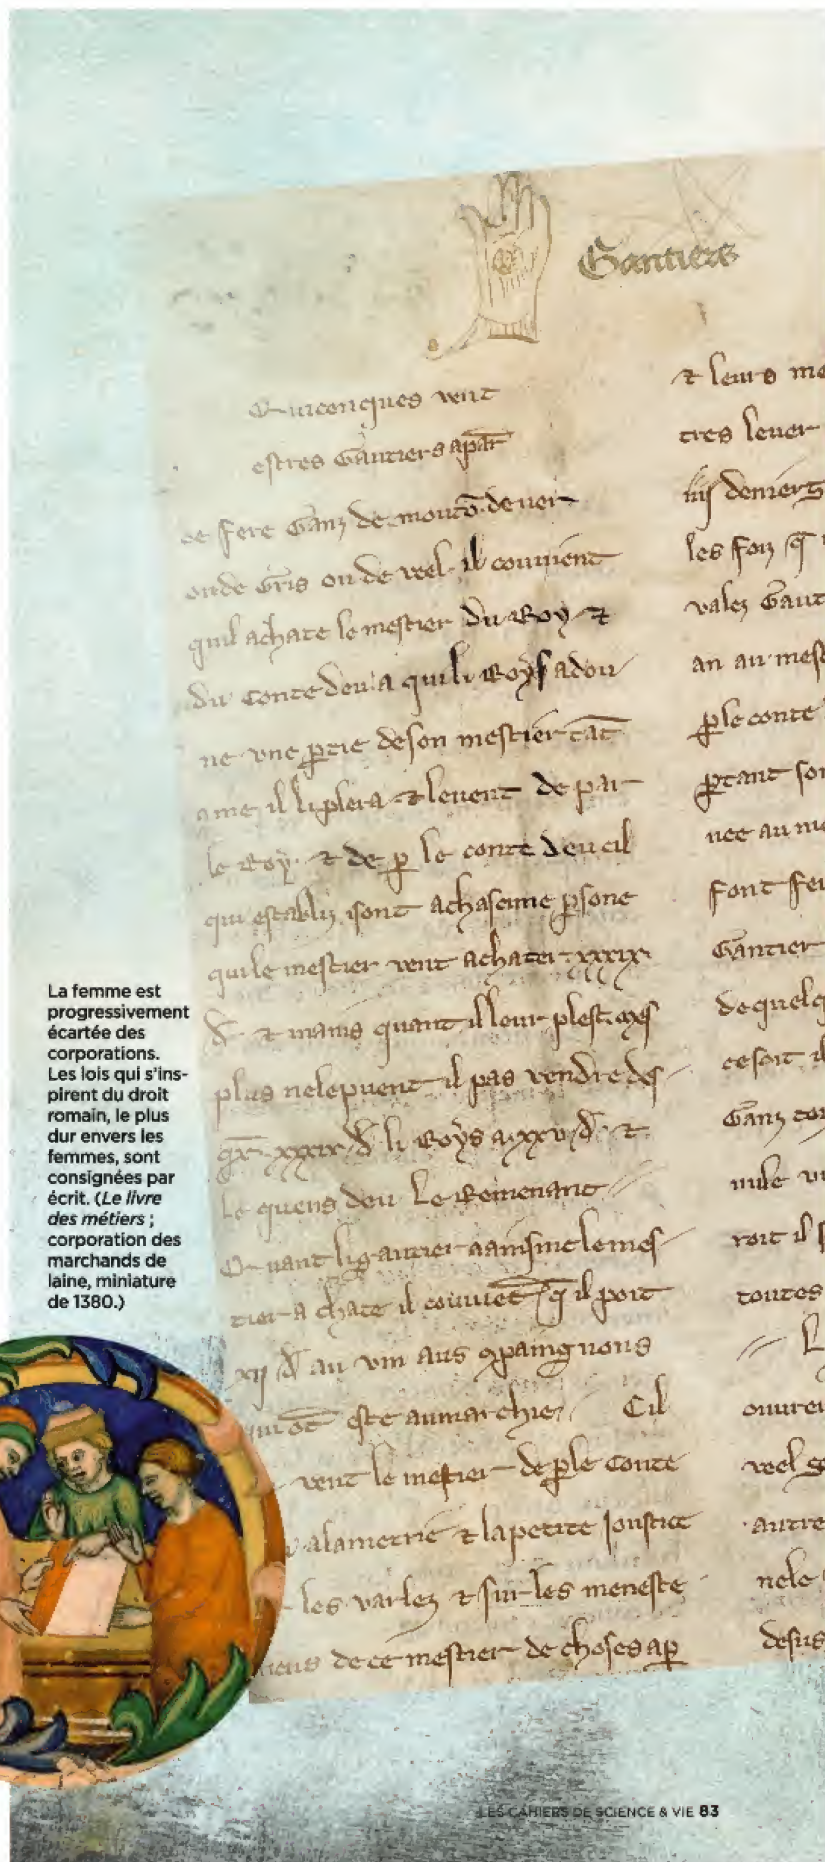 Gantiers
Quiconques veut
estres Gantiers a par
de fere Ganz de mouto de ver
ou de Gris ou de veel il couuient
quil achate le mestier du Roy et
du Conte deu a qui li Roys a dou
ne vne ptie de son mestier tat
il li plera et leuent de par
le Roy et de p le conte deu cil
qui establiz sont a chascune psone
qui le mestier veut achater xxxix
d et mains quant il leur plest mes
plus ne le puent il pas vendre des
xxxix d li Roys a xxv d et
le quens deu le Remenant
Quant li gantier a ainsinc le mes
tier achate il couuiet q il poit
xij d au vin aus opaingnons
qui ot este au marchie Cil
vent le mestier de p le Conte
a la metrie et la petite joustice
les varlez et sur les meneste
de ce mestier de choses ap
et leurs me
tres leuer
iiij deniers
les fon q
valez Gant
an au mes
p le conte
ptant son
uee au me
font fer
Gantier
de quelq
ce soit il
Ganz con
nule
roit il s
toutes
L
ouure
veel g
autre
nele
desus
La femme est
progressivement
écartée des
corporations.
Les lois qui s'ins-
pirent du droit
romain, le plus
dur envers les
femmes, sont
consignées par
écrit. (Le livre
des métiers ;
corporation des
marchands de
laine, miniature
de 1380.)
LES CAHIERS DE SCIENCE & VIE 83